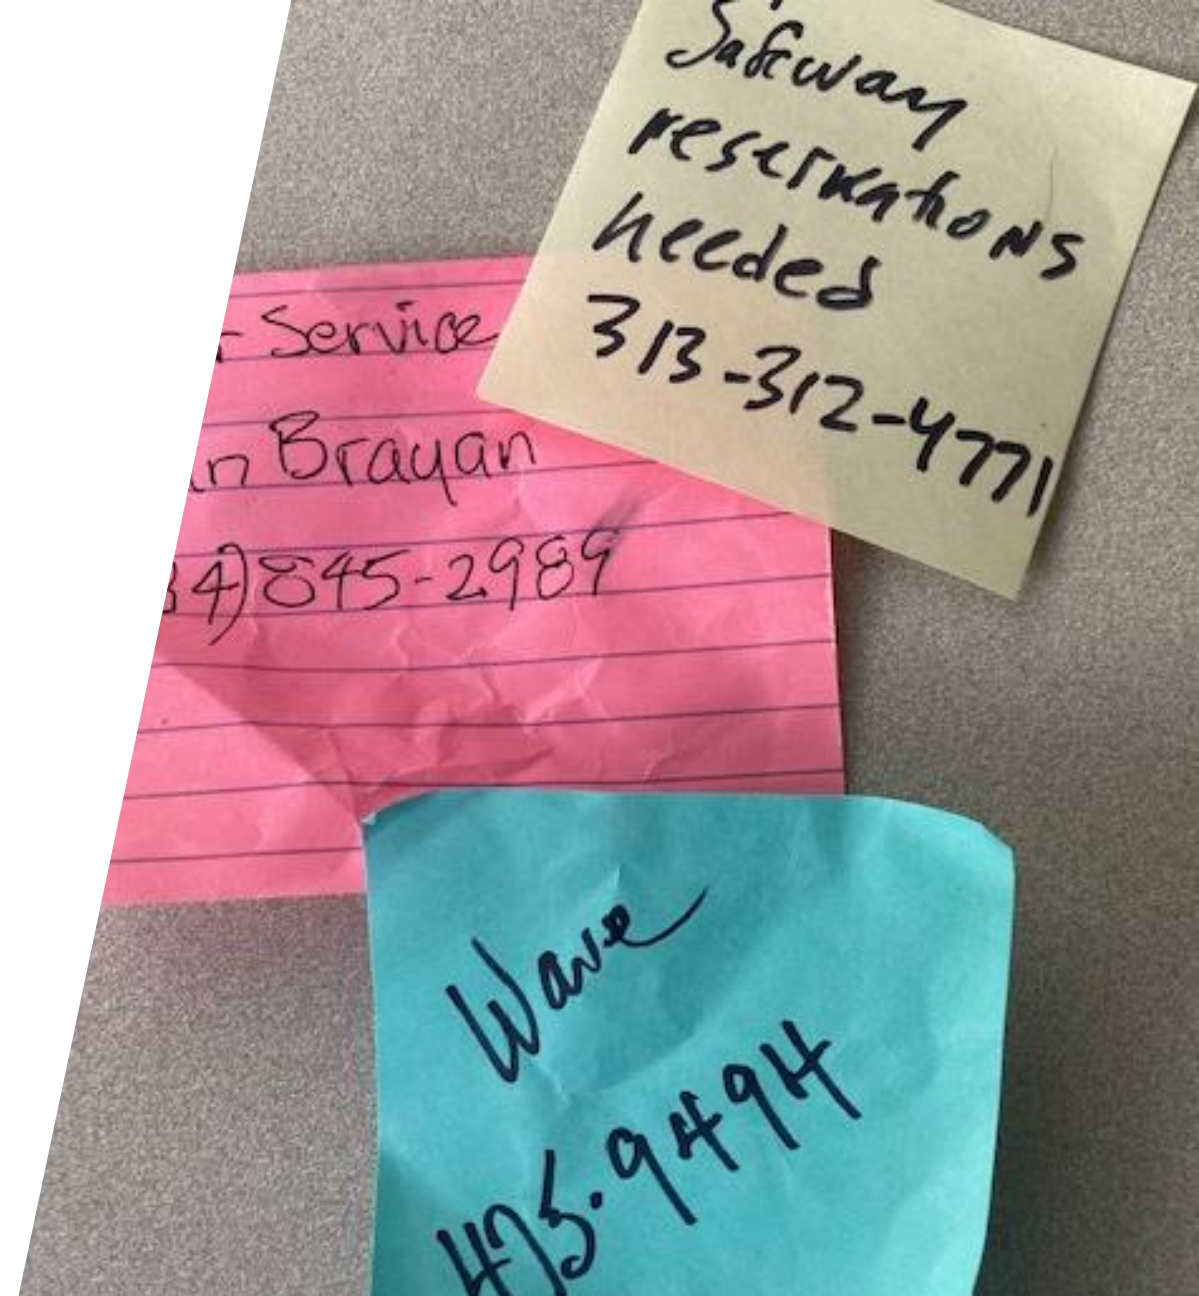 Safeway
reservations
needed
313-312-4771
Service
Brayan
4)845-2989
Wave
475.9494